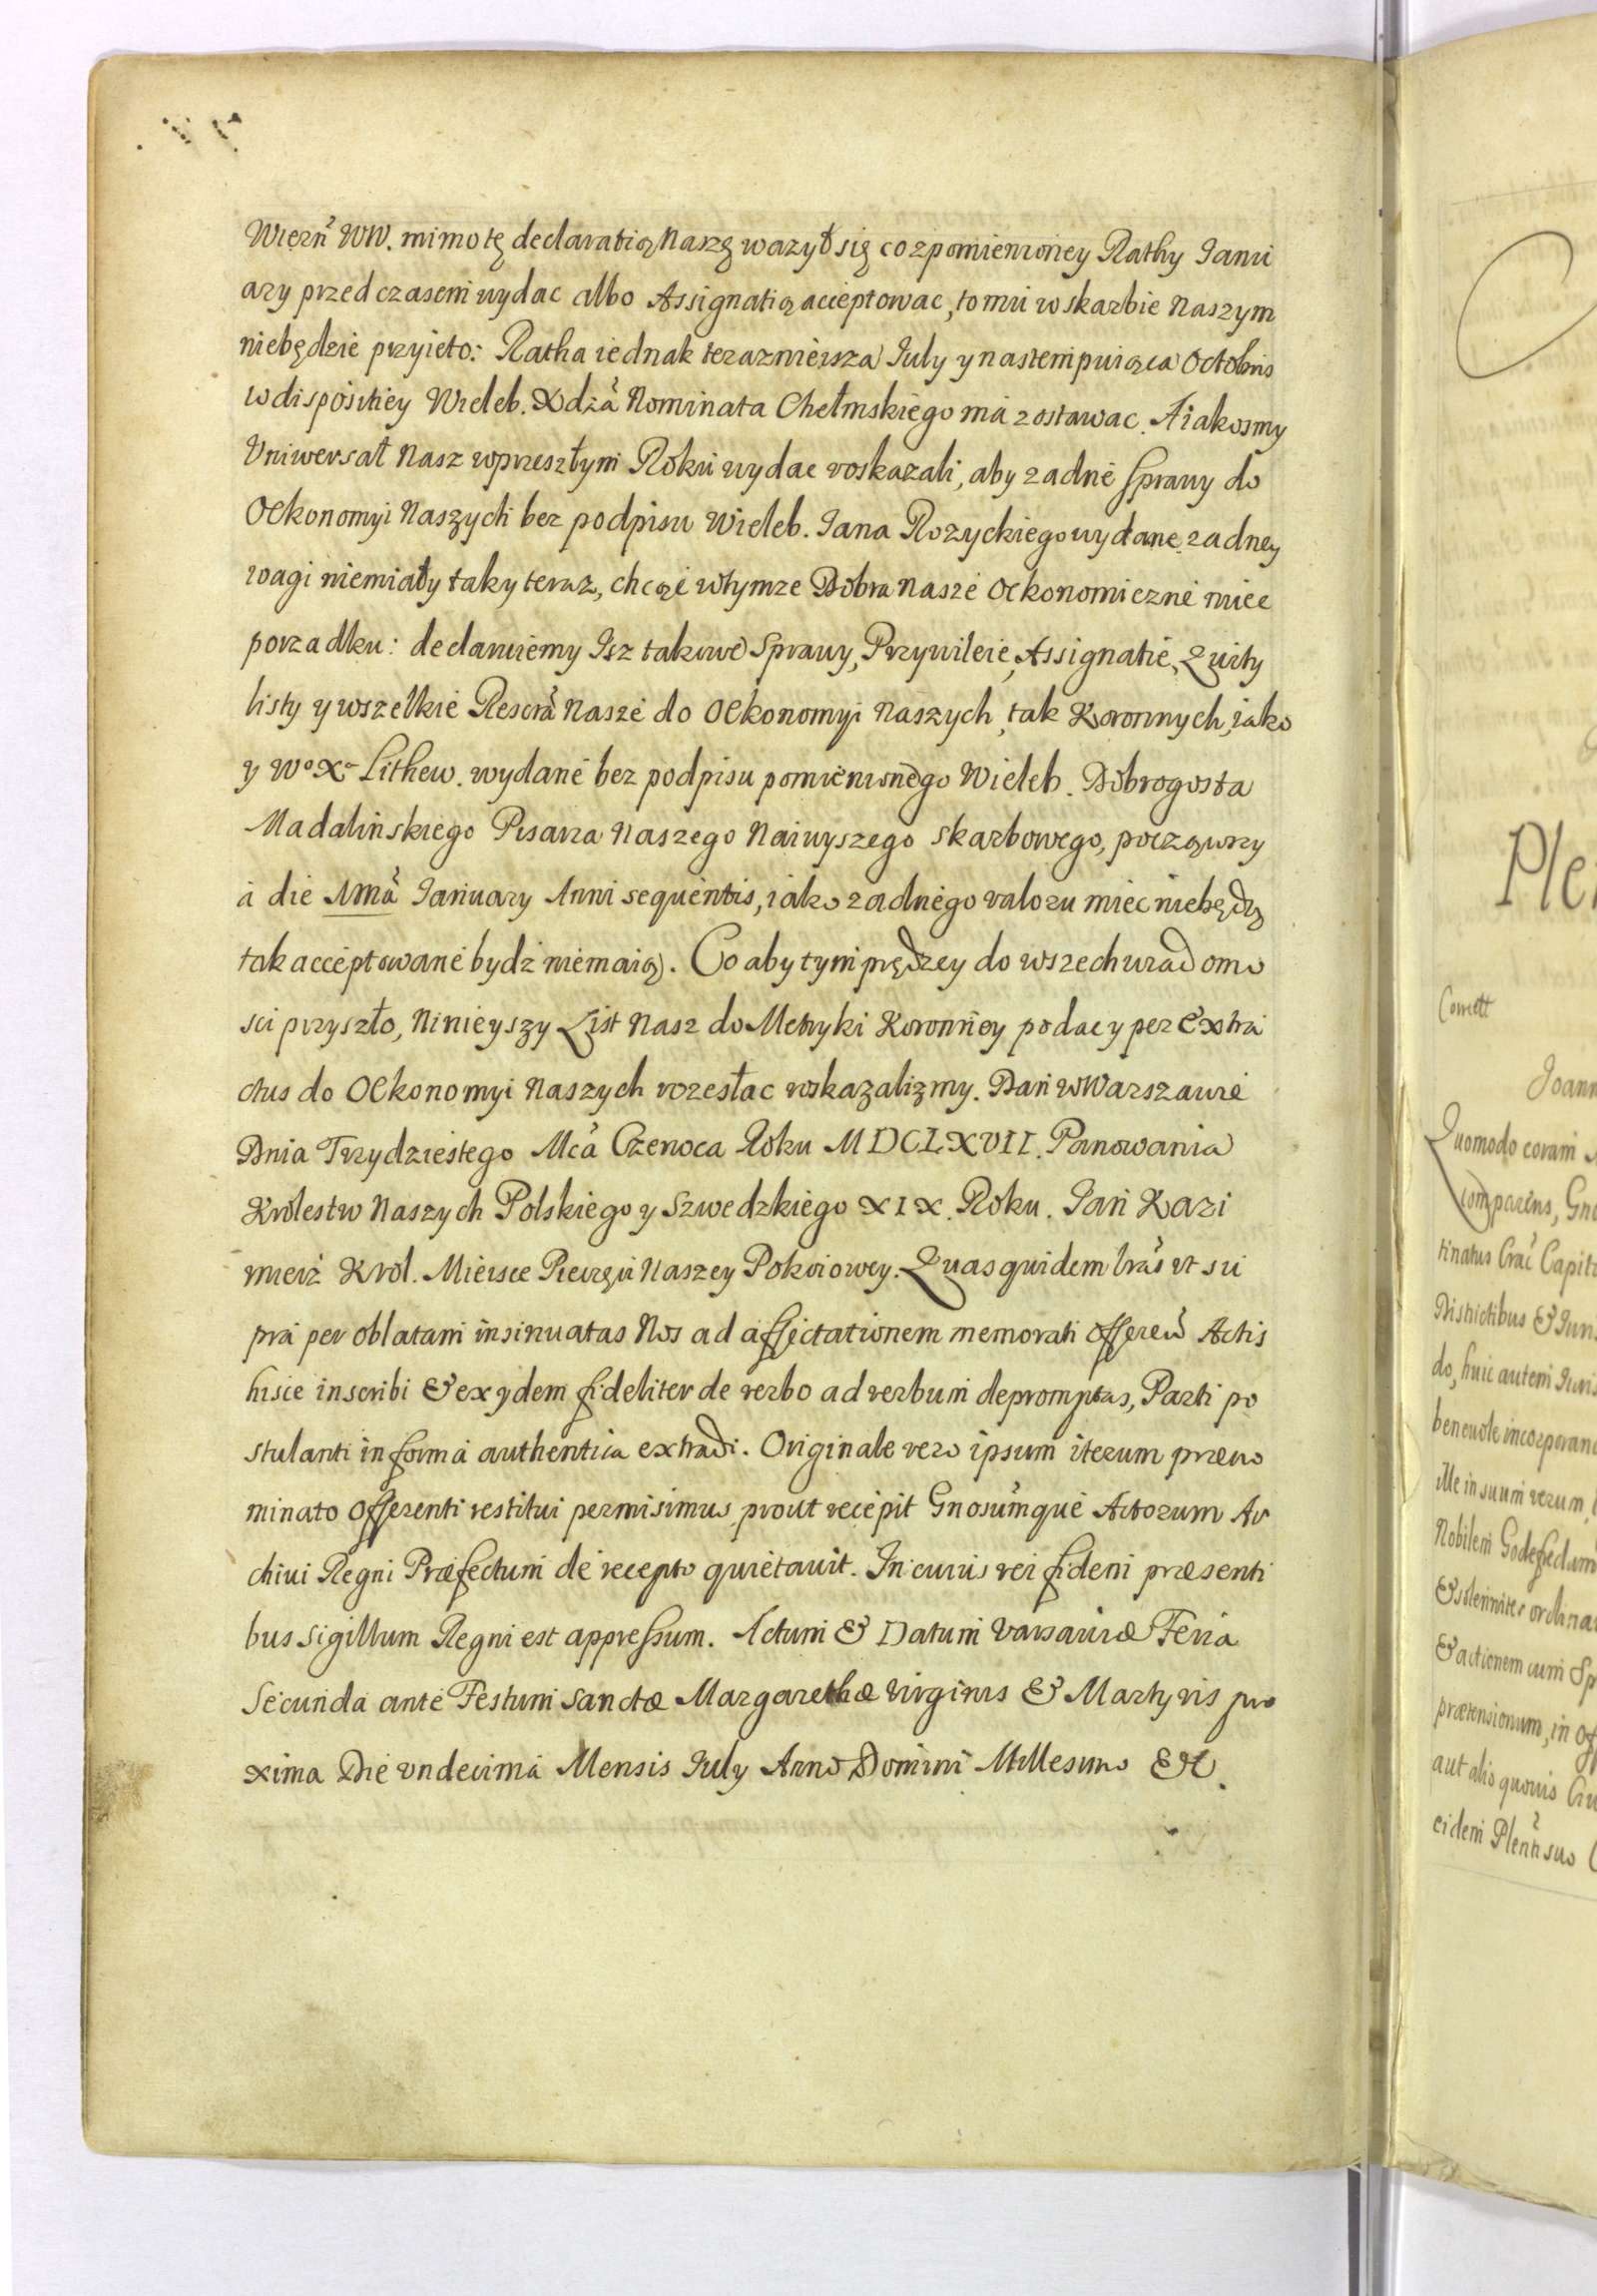 Wiern̉ WW. mimo tę declaratią Naszę wazył się co zpomienioney Rathy Janu
ary przed czasem wydac albo Assignatią acceptowac, to mu w skarbie Naszym
niebędzie przyieto: Ratha iednak terazniejsza July y nastempuiąca Octobris
w dispositiey Wieleb. Xdzả Nominata Chełmskiego ma zostawac. A iakosmy
Uniwersał Nasz w przeszłym Roku wydac roskazali, aby zadne Sprawy do
Oekonomyi Naszych bez podpisu Wieleb. Jana Rozyckiego wydane zadney
wagi niemiały tak y teraz, chcąc w tymze Dobra Nasze Oekonomiczne miec
porzadku: declaruiemy Isz takowe Sprawy, Przywileie, Assignatie, Quity
listy y wszelkie Rescrả Nasze do Oekonomyi Naszych, tak Koronnych, iako
y Wº Xº Lithew. wydane bez podpisu pomienionego Wieleb. Dobrogosta
Madalinskiego Pisarza Naszego Naiwyszego Skarbowego, począwszy
a die 1mả January Anni sequentis, iako zadnego valoru miec niebędą
tak acceptowane bydz niemaią. Co aby tym prędzey do wszech wiadomo
sci przyszło, Ninieyszy List Nasz do Metryki Koronney podac y per Extra
ctus do Oekonomyi Naszych rozesłac roskazalizmy. Dan w Warszawie
Dnia Trzydziestego Mcả Czerwca Roku MDCLXVII. Panowania
Krolestw Naszych Polskiego y Szwedzkiego XIX. Roku. Jan Kazi
mierz Krol. Mieisce Pieczęci Naszey Pokoiowey. Quas quidem lrảs ut su
pra per oblatam insinuatas Nos ad affectationem memorati Offeren̉ Actis
hisce inscribi & ex ijdem fideliter de verbo ad verbum depromptas, Parti po
stulanti in forma authentica extradi. Originale vero ipsum iterum præno
minato Offerenti restitui permisimus, prout recepit Gnosum̉que Actorum Ar
chivi Regni Præfectum de recepto quietavit. In cuius rei fidem præsenti
bus sigillum Regni est appressum. Actum & Datum Varsaviæ Feria
Secunda ante Festum Sanctæ Margarethæ Virginis & Martyris pro
xima Die undecima Mensis July Anno Domini Millesimo &c.
Plen
Comett
Joann
Quomodo coram
comparens, Gno
tinatus Crac̉ Capit
Districtibus & Juri
do, huic autem Juris
benevole incorporan
ille in suum verum,
Nobilem Godefredum
& solenniter ordina
& actionem cum Sp
prætensionum, in Of
aut alio quovis
eidem Plen̉ti suo